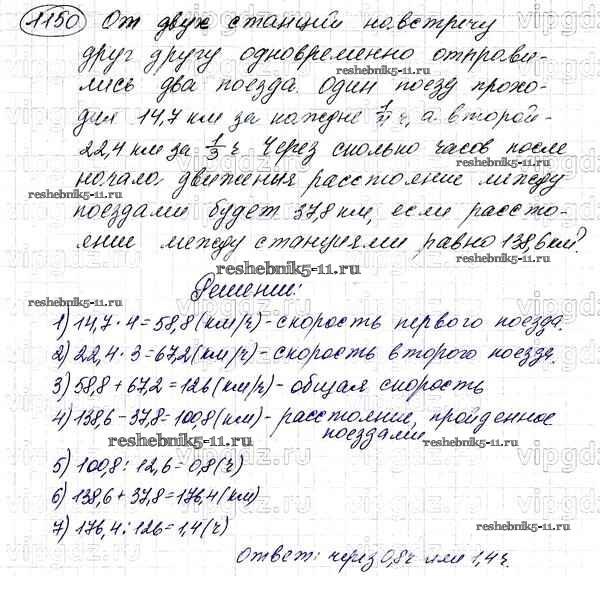 1150 От двух станций навстречу
друг другу одновременно отправи-
лись два поезда. Один поезд прохо-
дил 14,7 км за каждые 1/4 ч, а второй-
22,4 км за 1/3 ч. Через сколько часов после
начала движения расстояние между
поездами будет 37,8 км, если рассто-
яние между станциями равно 138,6 км?
Решение:
1) 14,7 · 4 = 58,8 (км/ч) - скорость первого поезда.
2) 22,4 · 3 = 67,2 (км/ч) - скорость второго поезда.
3) 58,8 + 67,2 = 126 (км/ч) - общая скорость
4) 138,6 - 37,8 = 100,8 (км) - расстояние, пройденное
поездами
5) 100,8 : 12,6 = 0,8 (ч)
6) 138,6 + 37,8 = 176,4 (км)
7) 176,4 : 126 = 1,4 (ч)
Ответ: через 0,8 ч или 1,4 ч.
reshebnik5-11.ru
reshebnik5-11.ru
reshebnik5-11.ru
reshebnik5-11.ru
reshebnik5-11.ru
reshebnik5-11.ru
reshebnik5-11.ru
reshebnik5-11.ru
vipgdz.ru